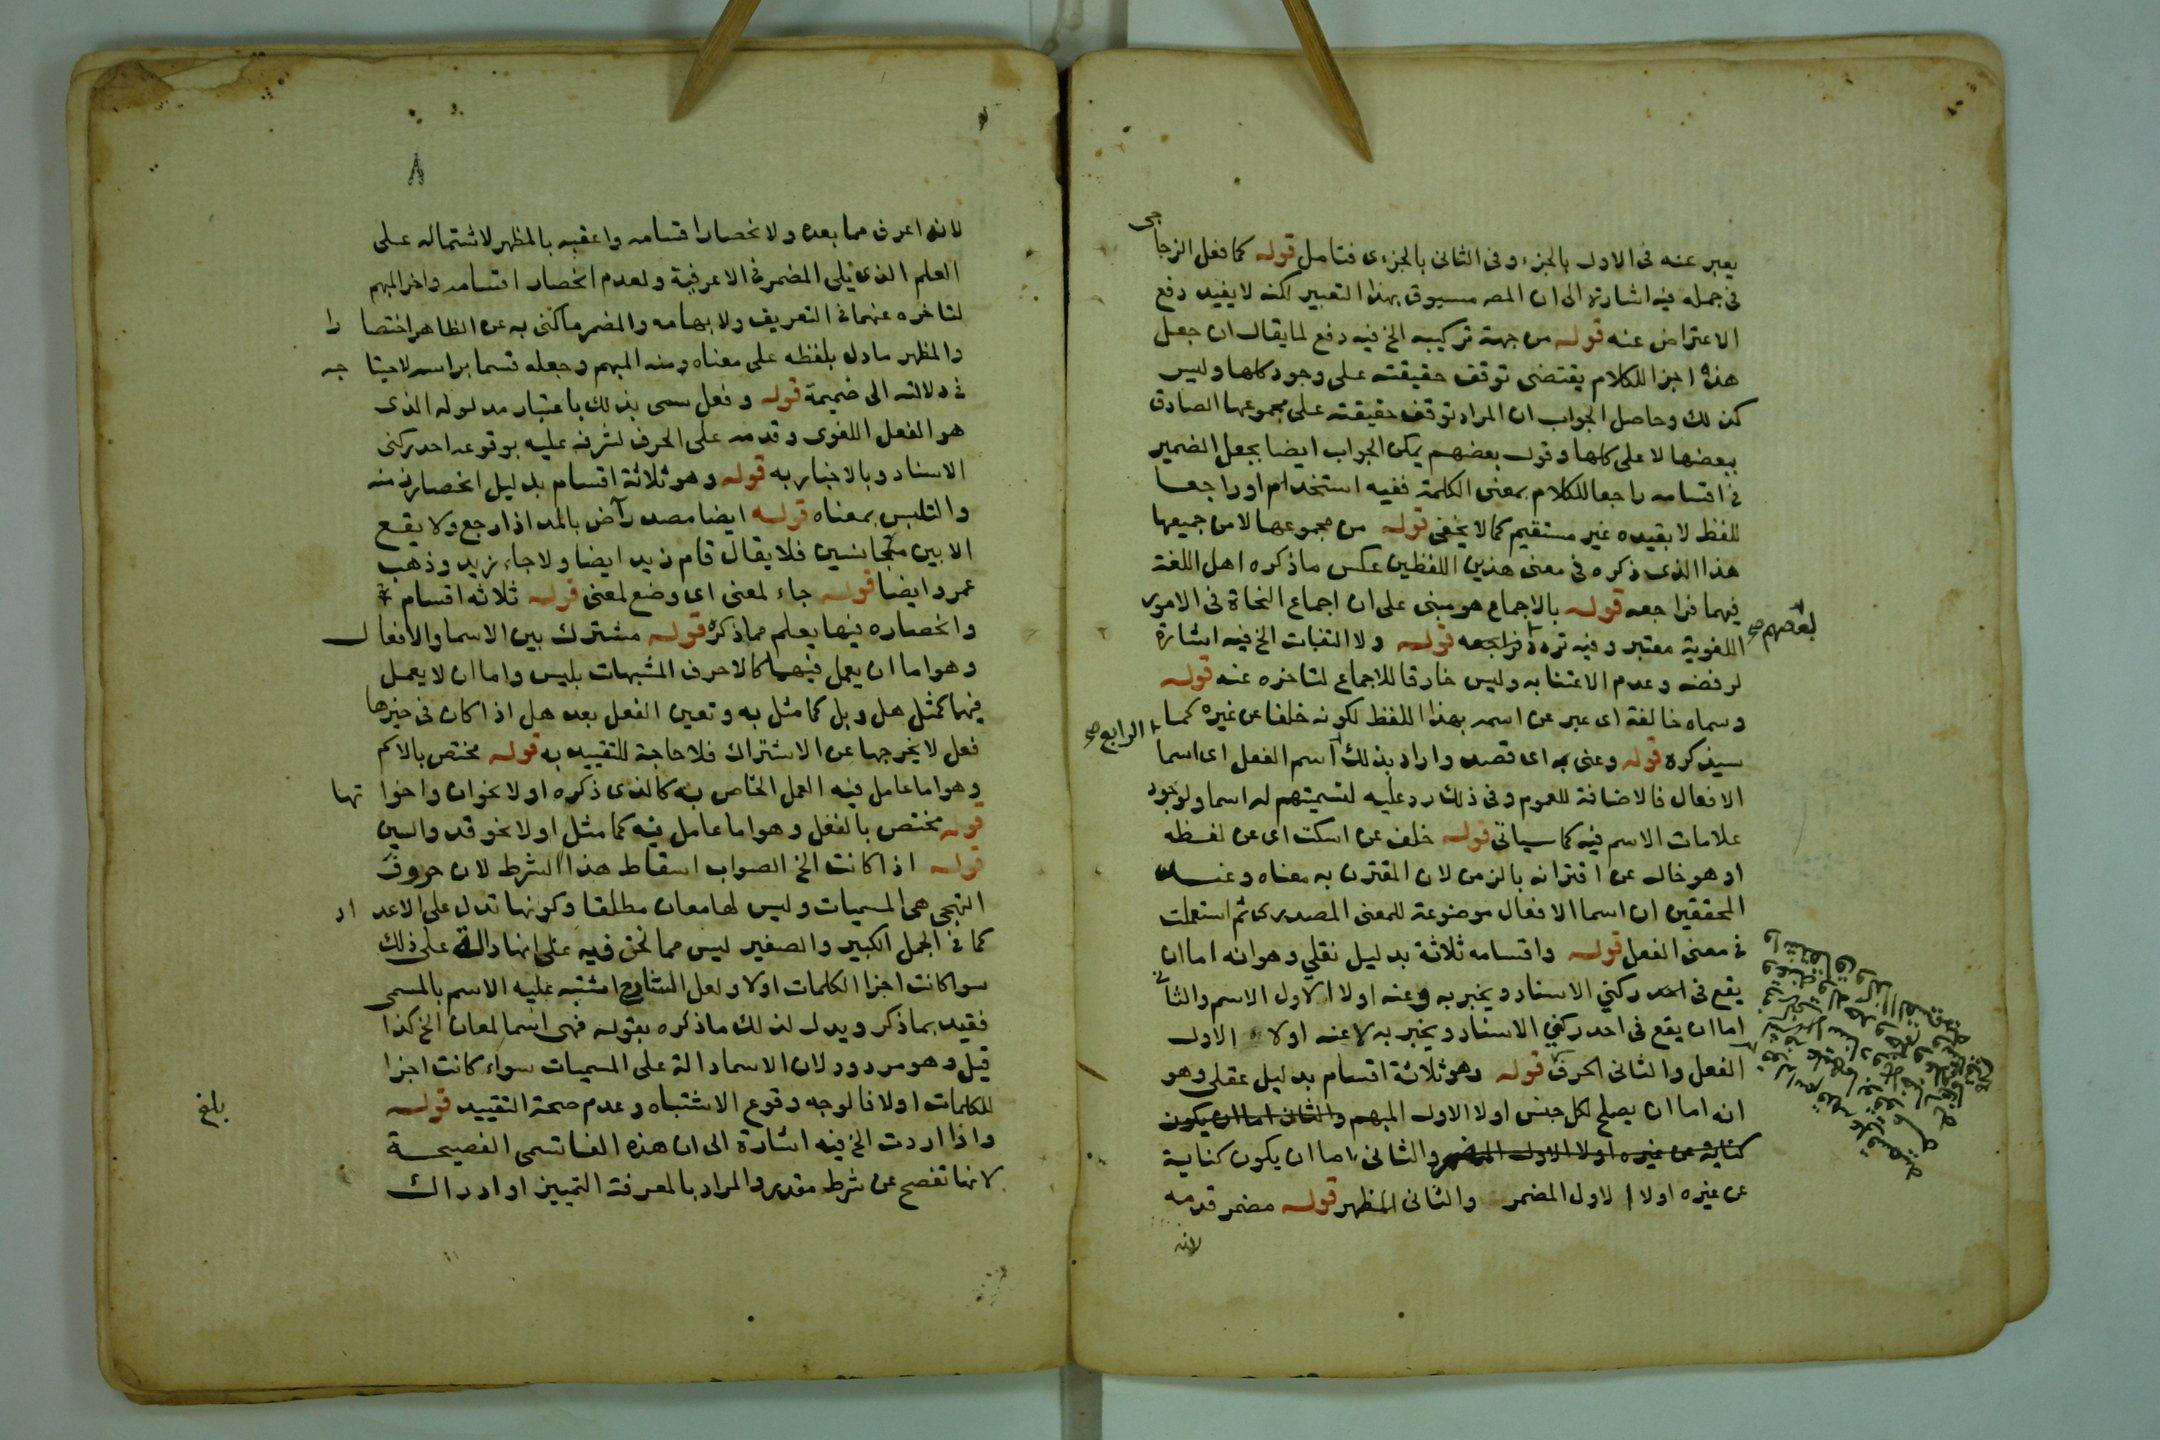 يعبر عنه فى الاول بالجزء وفى الثانى بالجزءى فتامل قوله كما فعل الزجاجى
فى جمله فيه اشارة الى ان المصـ مسبوق بهذا التعبير لكنه لا يفيد دفع
الاعتراض عنه قوله من جهة تركيبه الخ فيه دفع لما يقال ان جعل
هذه اجزا للكلام يقتضى توقف حقيقته على وجود كلها وليس
كذلك وحاصل الجواب ان المراد توقف حقيقته على مجموعها الصادق
ببعضها لا على كلها وقول بعضهم يمكن الجواب ايضا بجعل الضمير
فى اقسامه راجعا للكلام بمعنى الكلمة ففيه استخدام او راجعا
للفظ لا بقيده غير مستقيم كما لا يخفى قوله من مجموعها لا من جميعها
هذا الذى ذكره فى معنى هذين اللفظين عكس ما ذكره اهل اللغة
فيهما فراجعه قوله بالاجماع هو مبنى على ان اجماع النحاة فى الامور
اللغوية معتبر وفيه تردد فراجعه قوله ولا التفات الخ فيه اشارة
بعضهم صح
لرفضه وعدم الاعتنا به وليس خارقا للاجماع لتاخره عنه قوله
وسماه خالفة اى عبر عن اسمه بهذا اللفظ لكونه خلفا عن غيره كما
الرابع صح
سيذكره قوله وعنى به اى قصد واراد بذلك اسم الفعل اى اسما
الافعال فالاضافة للعموم وفى ذلك رد عليه لتسميتهم له اسما ولوجود
علامات الاسم فيه كما سياتى قوله خلف عن اسكت اى عن لفظه
اذ هو خال عن اقترانه بالزمن لان المقترن به معناه وعند
المحققين ان اسما الافعال موضوعة للمعنى المصدرى ثم استعملت
فى معنى الفعل قوله واقسامه ثلاثة بدليل نقلي وهو انه اما ان
يقع فى احد ركني الاسناد ويخبر به وعنه اولا الاول الاسم والثانى
اما ان يقع فى احد ركني الاسناد ويخبر به لا عنه اولا الاول
الفعل والثانى الحرف قوله وهو ثلاثة اقسام بدليل عقلى وهو
انه اما ان يصلح لكل جنس اولا الاول المبهم والثانى اما ان يكون
كناية عن غيره اولا الاول المضمر والثانى اما ان يكون كناية
عن غيره اولا الاول المضمر والثانى المظهر قوله مضمر قدمه
لانه
٨
لانه اعرف مما بعده ولانحصار اقسامه واعقبه بالمظهر لاشتماله على
العلم الذى يلى المضمر فى الاعرفية ولعدم انحصار اقسامه واخر المبهم
لتاخره عنهما فى التعريف ولابهامه والمضمر ما كنى به عن الظاهر اختصارا
والمظهر ما دل بلفظه على معناه ومنه المبهم وجعله قسما براسه لاحتياجه
فى دلالته الى ضميمة قوله وفعل سمى بذلك باعتبار مدلوله الذى
هو الفعل اللغوى وقدمه على الحرف لشرفه عليه بوقوعه احد ركنى
الاسناد وبالاخبار به قوله وهو ثلاثة اقسام بدليل انحصار زمنه
والتلبس بمعناه قوله ايضا مصدر آض بالمد اذا رجع ولا يقع
الا بين متجانسين فلا يقال قام زيد ايضا ولا جاء زيد وذهب
عمرو ايضا قوله جاء لمعنى اى وضع لمعنى قوله ثلاثه اقسام
وانحصاره فيها يعلم مما ذكره قوله مشترك بين الاسما والافعال
وهو اما ان يعمل فيهما كالاحرف المشبهات بليس واما ان لا يعمل
فيهما كمثل هل وبل كما مثل به وتعين الفعل بعد هل اذا كان فى حيزها
فعل لا يخرجها عن الاشتراك فلا حاجة للتقييد به قوله مختص بالاسم
وهو اما عامل فيه العمل الخاص به كالذى ذكره اولا نحو ان واخواتها
قوله مختص بالفعل وهو اما عامل فيه كما مثل اولا نحو قد والسين
قوله اذا كانت الخ الصواب اسقاط هذا الشرط لان حروف
التهجى هى المسميات وليس لها معان مطلقا وكونها تدل على الاعداد
كما فى الجمل الكبير والصغير ليس مما نحن فيه على انها دالة على ذلك
سوا كانت اجزا الكلمات اولا ولعل الشارح اشتبه عليه الاسم بالمسمى
فقيد بما ذكر ويدل لذلك ما ذكره بقوله فهى اسما لمعان الخ كذا
قيل وهو مردود لان الاسما دالة على المسميات سواء كانت اجزا
للكلمات اولا فالوجه وقوع الاشتباه وعدم صحة التقييد قوله
بلغ
واذا اردت الخ فيه اشارة الى ان هذه الفا تسمى الفصيحة
لانها تفصح عن شرط مقدر والمراد بالمعرفة التمييز او ادراك